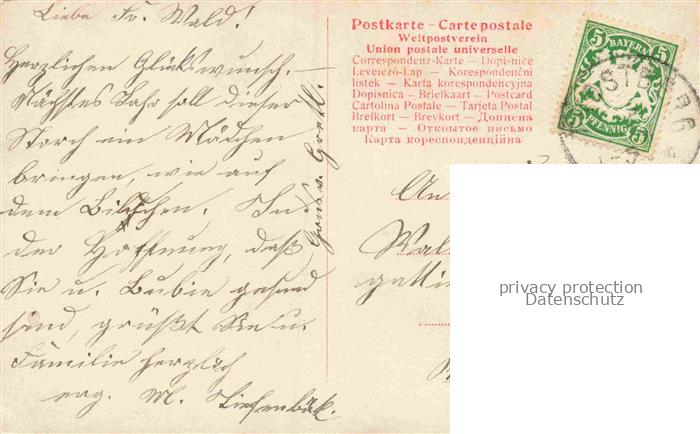 Liebe Fr. Wald!
Herzlichen Glückwunsch. —
Nächstes Jahr soll dieser
Storch ein Mädchen
bringen, wie auf
dem Bildchen. In
der Hoffnung, daß
Sie u. Bubie gesund
sind, grüßt Sie u.
Familie herzlich
erg. M. Tiefenbäk.
Postkarte – Carte postale
Weltpostverein
Union postale universelle
Correspondenz-Karte — Dopisnice
Levelező-Lap — Korespondenčni
listek — Karta korespondencyjna
Dopisnica — Briefkaart — Postcard
Cartolina Postale — Tarjeta Postal
Brefkort — Brevkort — Дописна
карта — Открытое письмо
Карта кореспонденційна
5 BAYERN 5
5 PFENNIG 5
An
Wal
gatti
privacy protection
Datenschutz